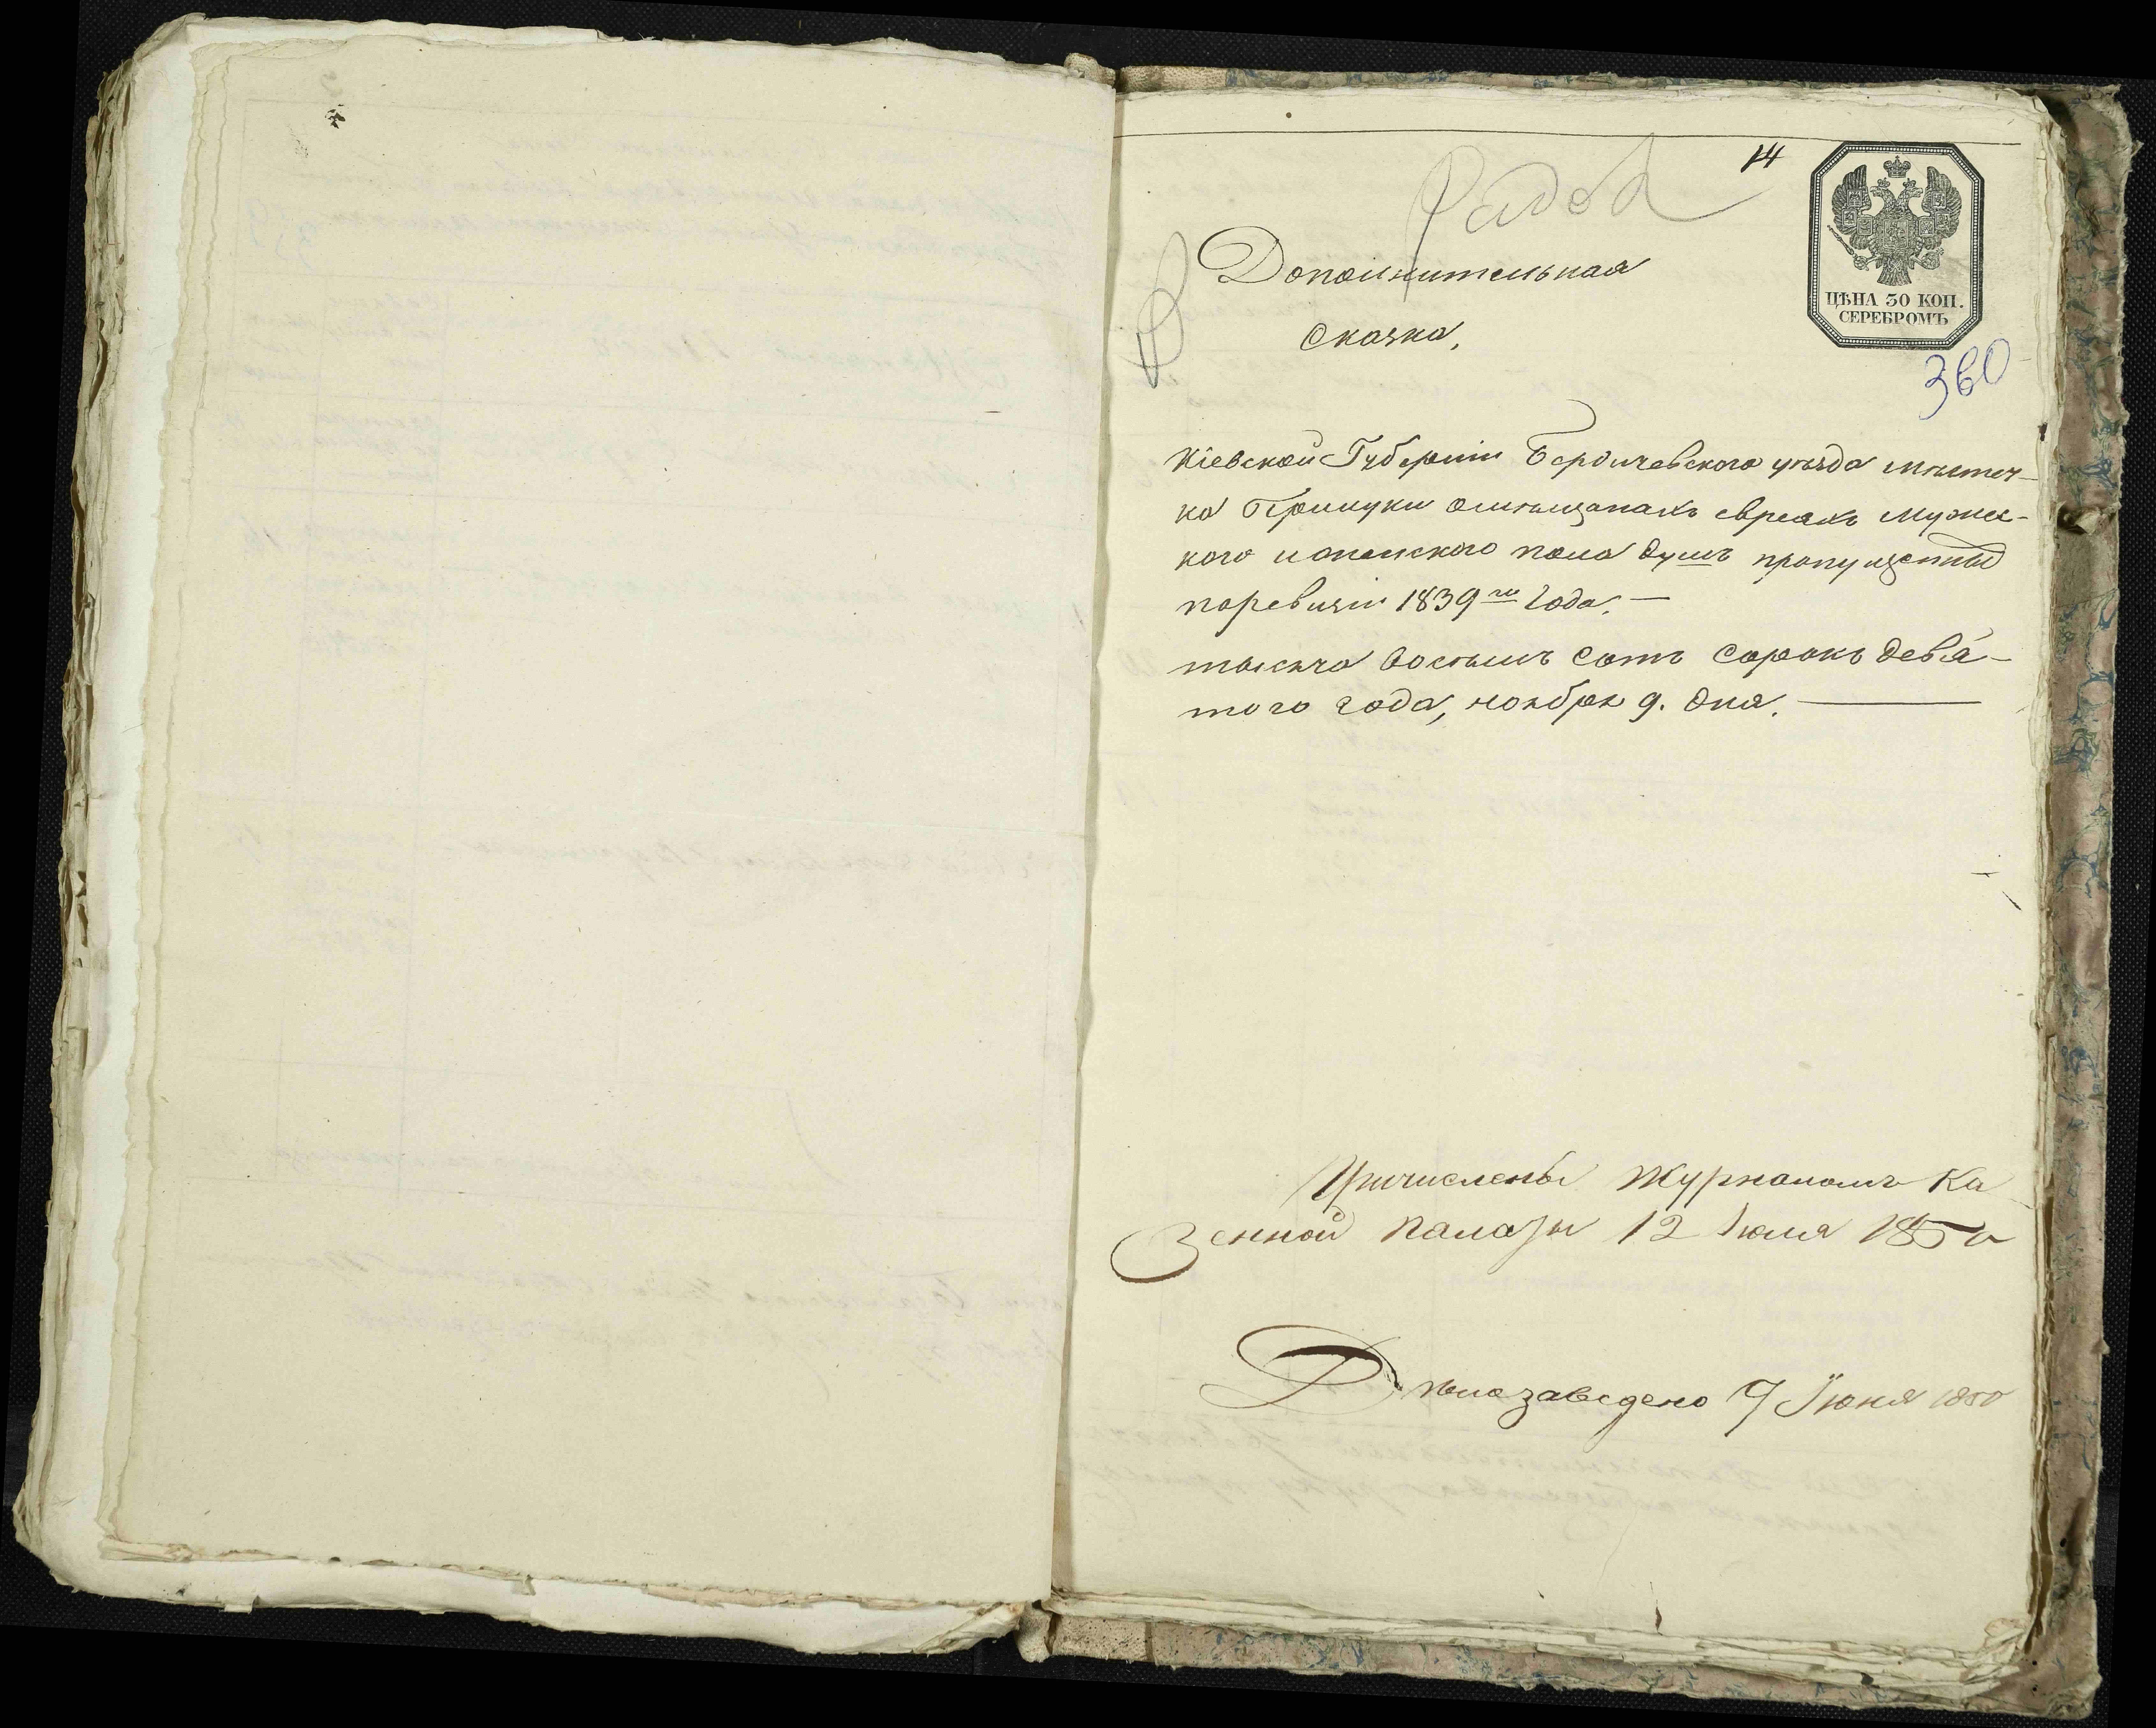 14
ЦѢНА 30 КОП.
СЕРЕБРОМЪ
360
Дополнительная
Сказка,
Кіевской Губерніи Бердичевского уѣзда мѣстеч-
ка Прилуки омѣщанахъ евреяхъ мужес-
кого иженского пола душъ пропущенныхъ
поревизіи 1839го года. —
тысяча восѣмъ сотъ сорокъ девя-
того года, ноября 9. дня. —
Причислены Журналомъ Ка
зенной палаты 12 Іюля 1850
Дѣло заведено 7 Іюня 1850